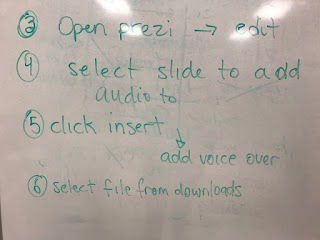 ③ Open prezi → edit
④ select slide to add
audio to
⑤ click insert
↓
add voice over
⑥ select file from downloads